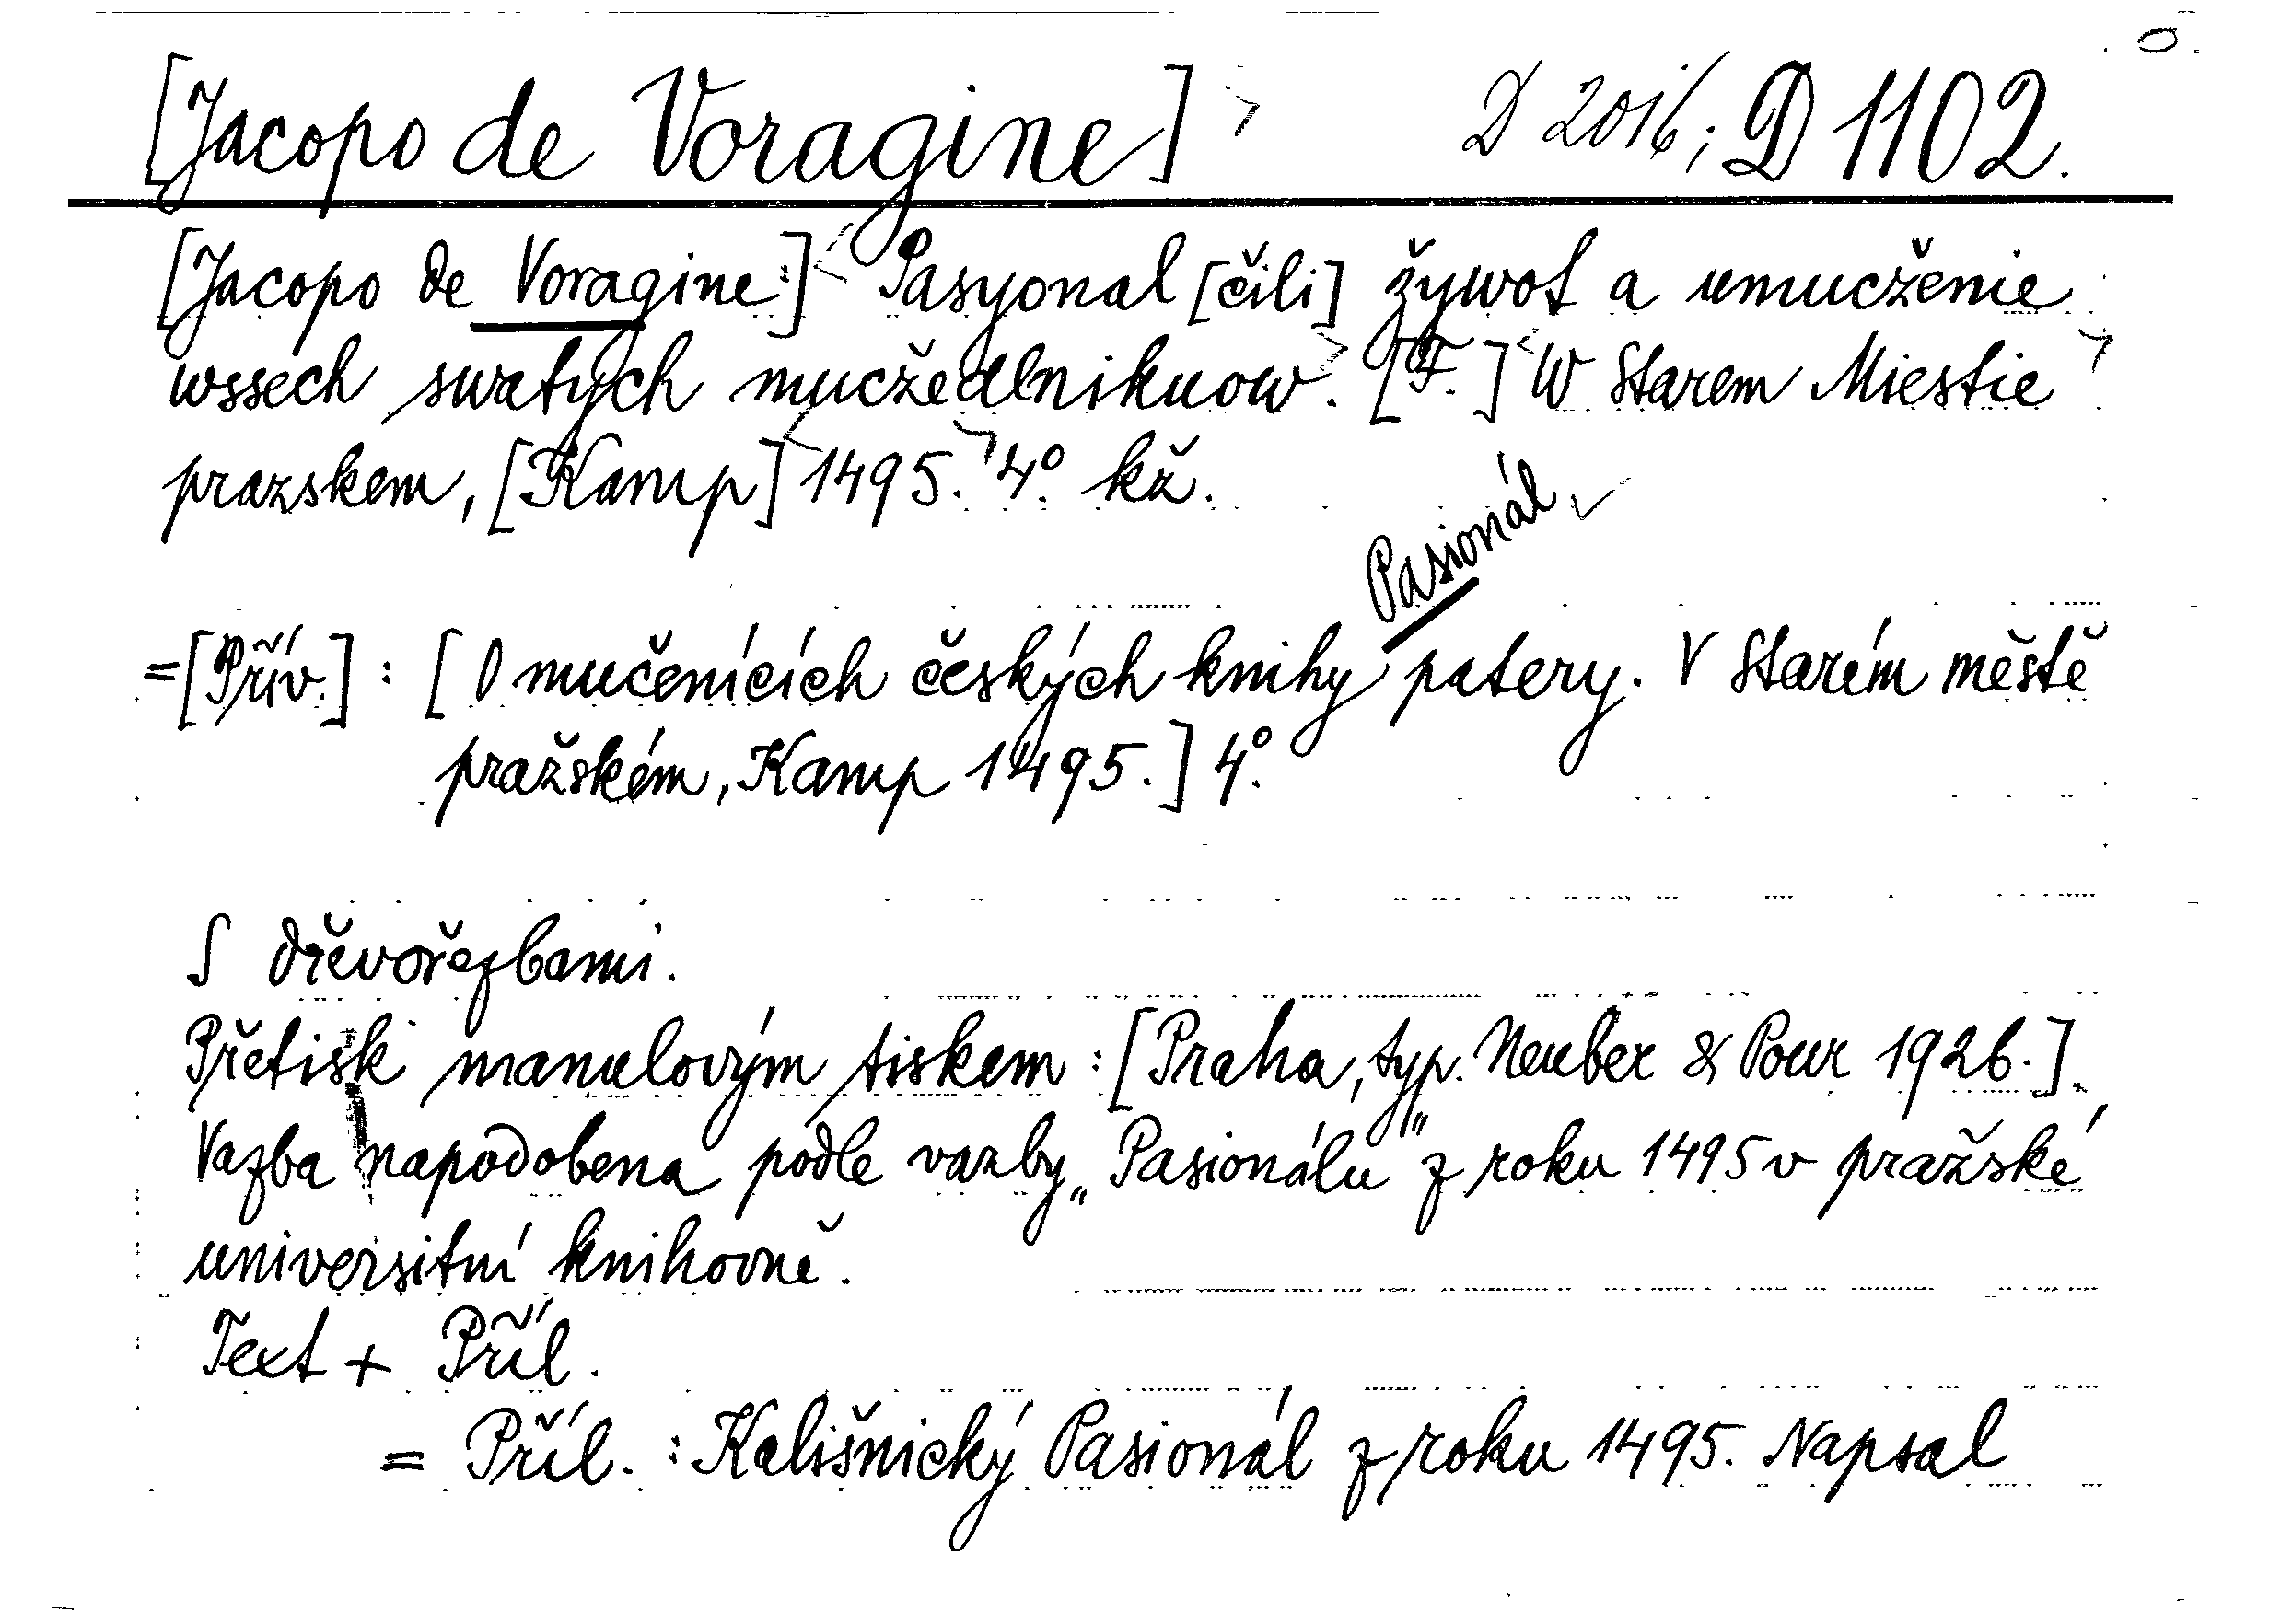 [Jacopo de Voragine] D 2016; D 1102.
[Jacopo de Voragine:] Pasyonal [čili] žywot a umučženie
wssech swatych mučžedlnikuow. [F.] W Starem Miestie
prazskem, [Kamp] 1495. 4º. kž.
Pasionál
=[Přív.]: [O mučenících českých knihy patery. V Starém městě
pražském, Kamp 1495.] 4º.
S dřevořezbami.
Přetisk manulovým tiskem: [Praha, typ. Neuber & Pour 1926.].
Vazba napodobena podle vazby „Pasionálu" z roku 1495 v pražské
universitní knihovně.
Text + Příl.
= Příl.: Kališnický Pasionál z roku 1495. Napsal